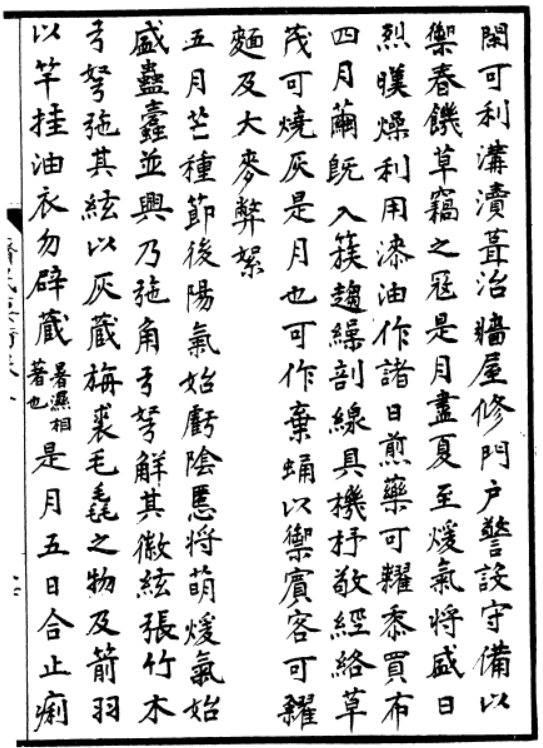 閑可利溝瀆葺治牆屋修門户警設守備以
禦春饑草竊之寇是月盡夏至煖氣將盛日
烈暵燥利用漆油作諸日煎藥可糶黍買布
四月繭既入簇趨繰剖線具機杼敬經絡草
茂可燒灰是月也可作棗蛹以禦賓客可糴
麵及大麥弊絮
五月芒種節後陽氣始虧陰慝將萌煖氣始
盛蟲蠹並興乃弛角弓弩解其徽絃張竹木
弓弩弛其絃以灰藏旃裘毛毳之物及箭羽
以竿挂油衣勿辟藏暑濕相著也是月五日合止痢